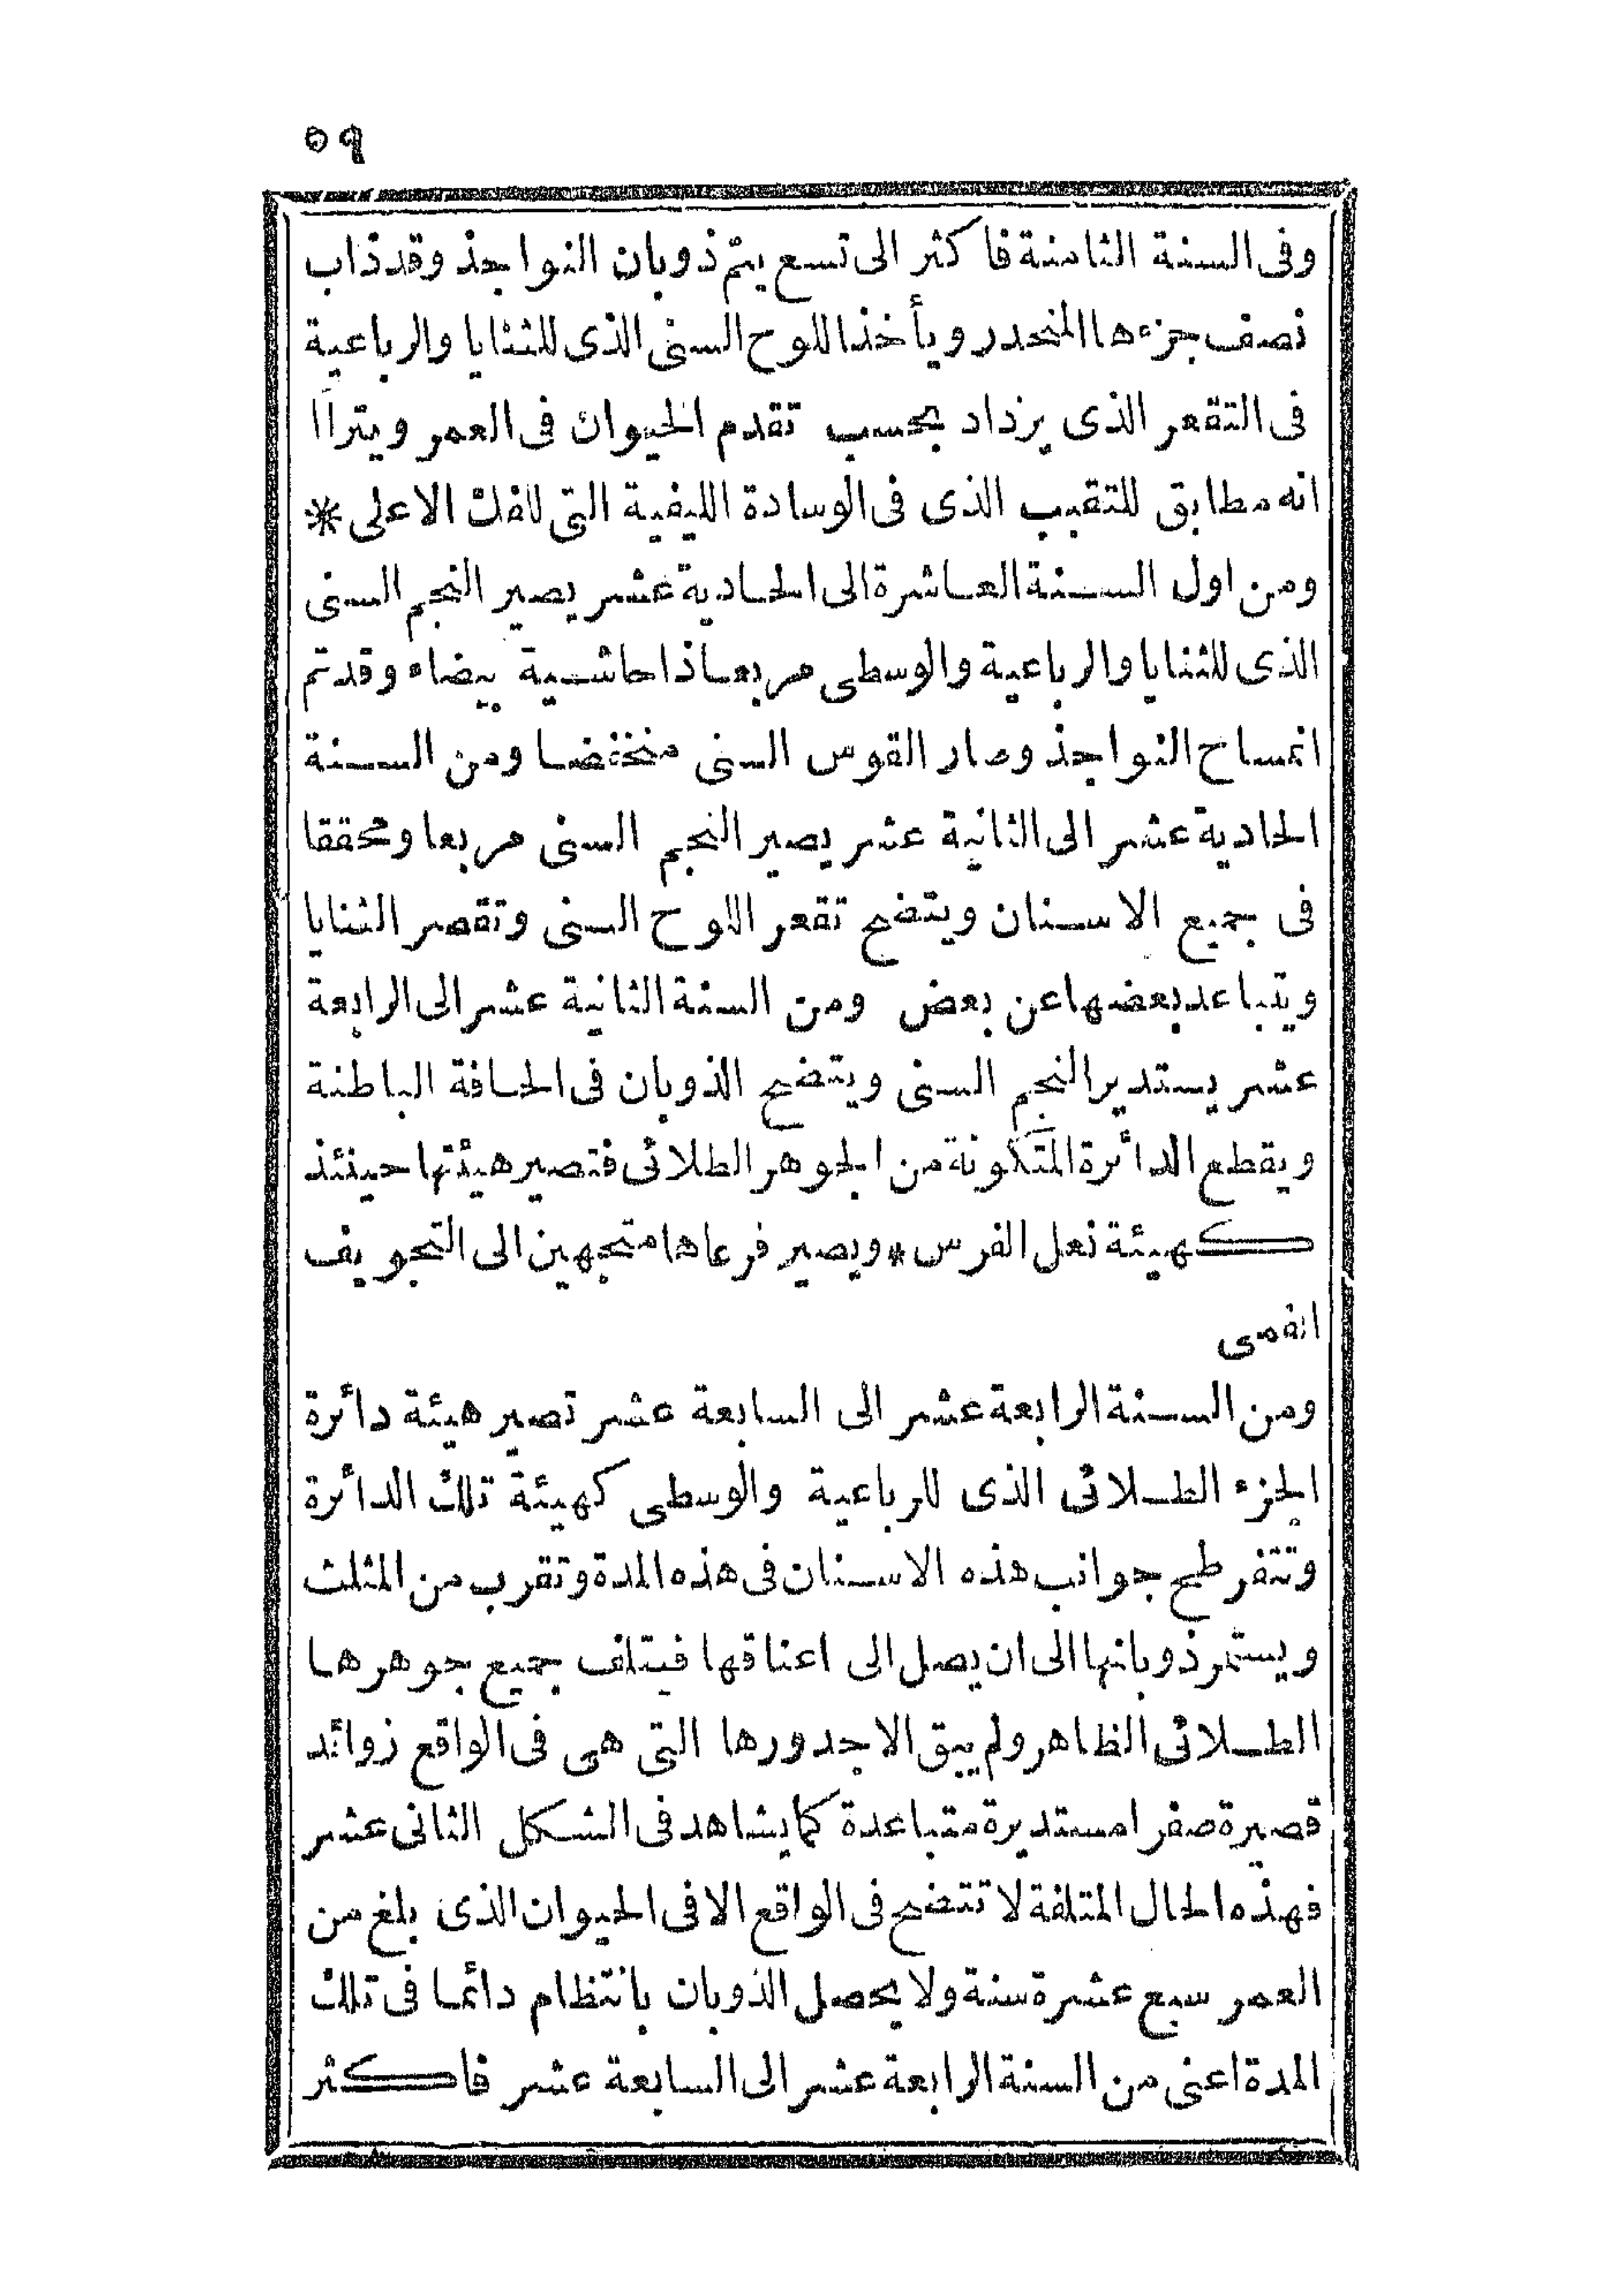 ٥٩
وفى السنة الثامنة فاكثر الى تسع يتم ذوبان النواجذ وقد ذاب
نصف جزءها المنحدر ويأخذ اللوح السنى الذى للثنايا والرباعية
فى التقعر الذى يزداد بحسب تقدم الحيوان فى العمر ويترآا
انه مطابق للتقبب الذى فى الوسادة الليفية التى للفك الاعلى *
ومن اول السنة العاشرة الى الحادية عشر يصير النجم السنى
الذى للثنايا والرباعية والوسطى مربعا ذا حاشية بيضاء وقد تم
انمساح النواجذ وصار القوس السنى منخفضا ومن السنة
الحادية عشر الى الثانية عشر يصير النجم السنى مربعا ومحققا
فى جميع الاسنان ويتضح تقعر اللوح السنى وتقصر الثنايا
ويتباعد بعضها عن بعض ومن السنة الثانية عشر الى الرابعة
عشر يستدير النجم السنى ويتضح الذوبان فى الحافة الباطنة
ويقطع الدائرة المتكونة من الجوهر الطلائى فتصير هيئتها حينئذ
كهيئة نعل الفرس * ويصير فرعاها متجهين الى التجويف
الفمى
ومن السنة الرابعة عشر الى السابعة عشر تصير هيئة دائرة
الجزء الطلائى الذى للرباعية والوسطى كهيئة تلك الدائرة
وتتفرطح جوانب هذه الاسنان فى هذه المدة وتقرب من المثلث
ويستمر ذوبانها الى ان يصل الى اعناقها فيتلف جميع جوهرها
الطلائى الظاهر ولم يبق الا جدورها التى هى فى الواقع زوائد
قصيرة صفرا مستديرة متباعدة كما يشاهد فى الشكل الثانى عشر
فهذه الحال المتلفة لا تتضح فى الواقع الا فى الحيوان الذى بلغ من
العمر سبع عشرة سنة ولا يحصل الذوبان بانتظام دائما فى تلك
المدة اعنى من السنة الرابعة عشر الى السابعة عشر فاكثر